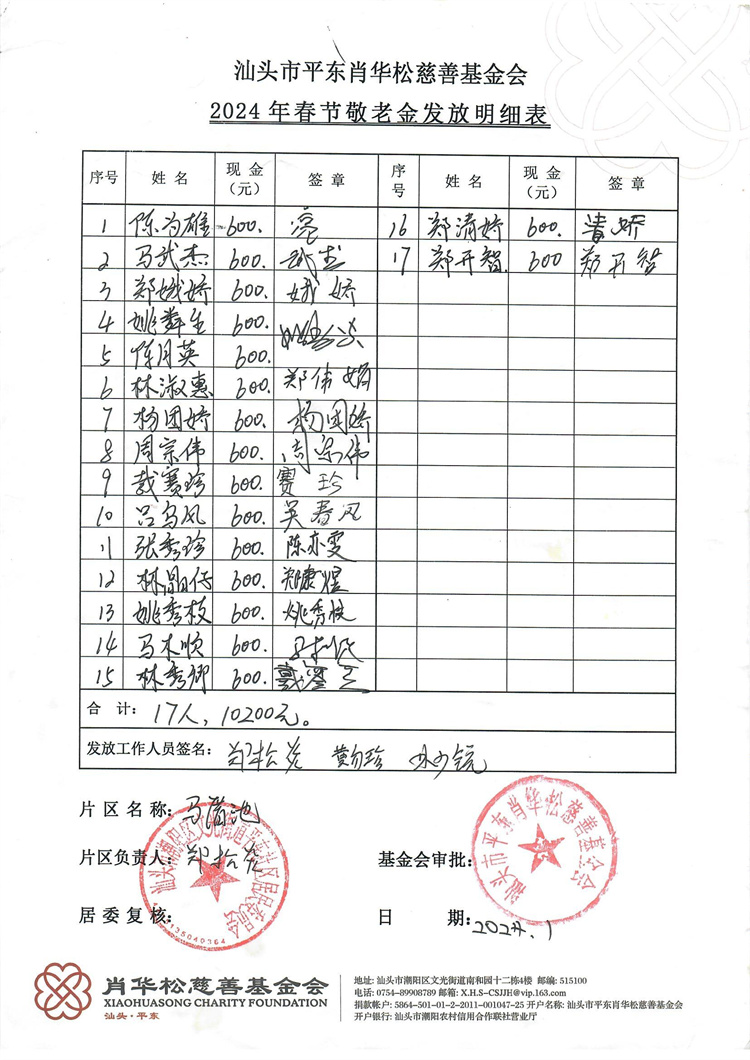 汕头市平东肖华松慈善基金会
2024年春节敬老金发放明细表
序号 姓名 现金(元) 签章 序号 姓名 现金(元) 签章
1 陈为雄 600. 16 郑清娇 600. 清娇
2 马武杰 600. 武杰 17 郑开智 600 郑开智
3 郑娥娇 600. 娥娇
4 姚舜生 600.
5 陈月英 600.
6 林淑惠 600. 郑伟娟
7 杨团娇 600. 杨团娇
8 周宗伟 600. 周宗伟
9 戴赛珍 600. 赛珍
10 吕乌凤 600. 吴春凤
11 张秀珍 600. 陈亦雯
12 林 仔 600. 郑康煜
13 姚秀枝 600. 姚秀枝
14 马木顺 600.
15 林秀卿 600.
合计: 17人, 10200元。
发放工作人员签名: 郑松炎 黄匀珍
片区名称: 马潽池
片区负责人: 郑松炎 基金会审批:
居委复核: 日期: 2024.1
汕头市平东肖华松慈善基金会
肖华松慈善基金会
XIAOHUASONG CHARITY FOUNDATION
汕头·平东
地址: 汕头市潮阳区文光街道南和园十二栋4楼 邮编: 515100
电话: 0754-89908789 邮箱: X.H.S-CSJJH@vip.163.com
捐款帐户: 5864-501-01-2-2011-001047-25 开户名称: 汕头市平东肖华松慈善基金会
开户银行: 汕头市潮阳农村信用合作联社营业厅